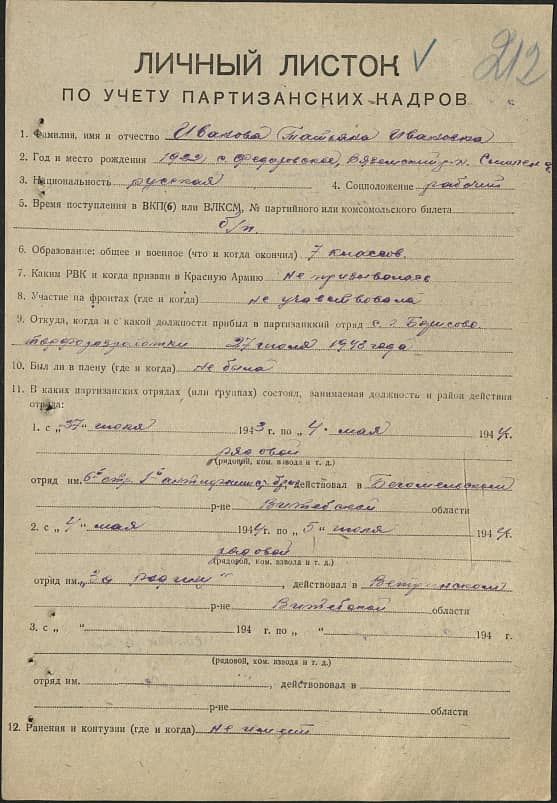 212
ЛИЧНЫЙ ЛИСТОК
ПО УЧЕТУ ПАРТИЗАНСКИХ КАДРОВ
1. Фамилия, имя и отчество Иванова Татьяна Ивановна
2. Год и место рождения 1922 с. Федоровское, Вяземский р-н. Смолен
3. Национальность русская 4. Соцположение рабочий
5. Время поступления в ВКП(б) или ВЛКСМ, № партийного или комсомольского билета
б/п.
6. Образование: общее и военное (что и когда окончил) 7 классов.
7. Каким РВК и когда призван в Красную Армию не призывалась
8. Участие на фронтах (где и когда) не участвовала
9. Откуда, когда и с какой должности прибыл в партизанский отряд с г. Борисово.
торфоразработки 27 июля 1943 года
10. Был ли в плену (где и когда) не была
11. В каких партизанских отрядах (или группах) состоял, занимаемая должность и район действия
отряда:
1. с „ “ 1943 г. по „4“ мая 1944 г.
рядовой
(рядовой, ком. взвода и т. д.)
отряд им. 6й отр. 1й действовал в Бегомельском
р-не Витебской области
2. с „4“ мая 1944 г. по „5“ июня 1944 г.
рядовой
(рядовой, ком. взвода и т. д.)
отряд им. „За родину“, действовал в Ветринском
р-не Витебской области
3. с „ “ 194 г. по „ “ 194 г.
(рядовой, ком. взвода и т. д.)
отряд им. , действовал в
р-не области
12. Ранения и контузии (где и когда) не имеет